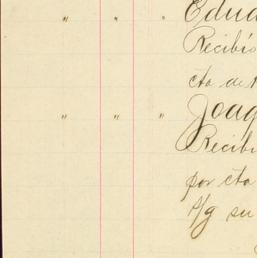 " " " Edua
Recibí
cta de
" " " Joaq
Recibi
por cta
s/g su